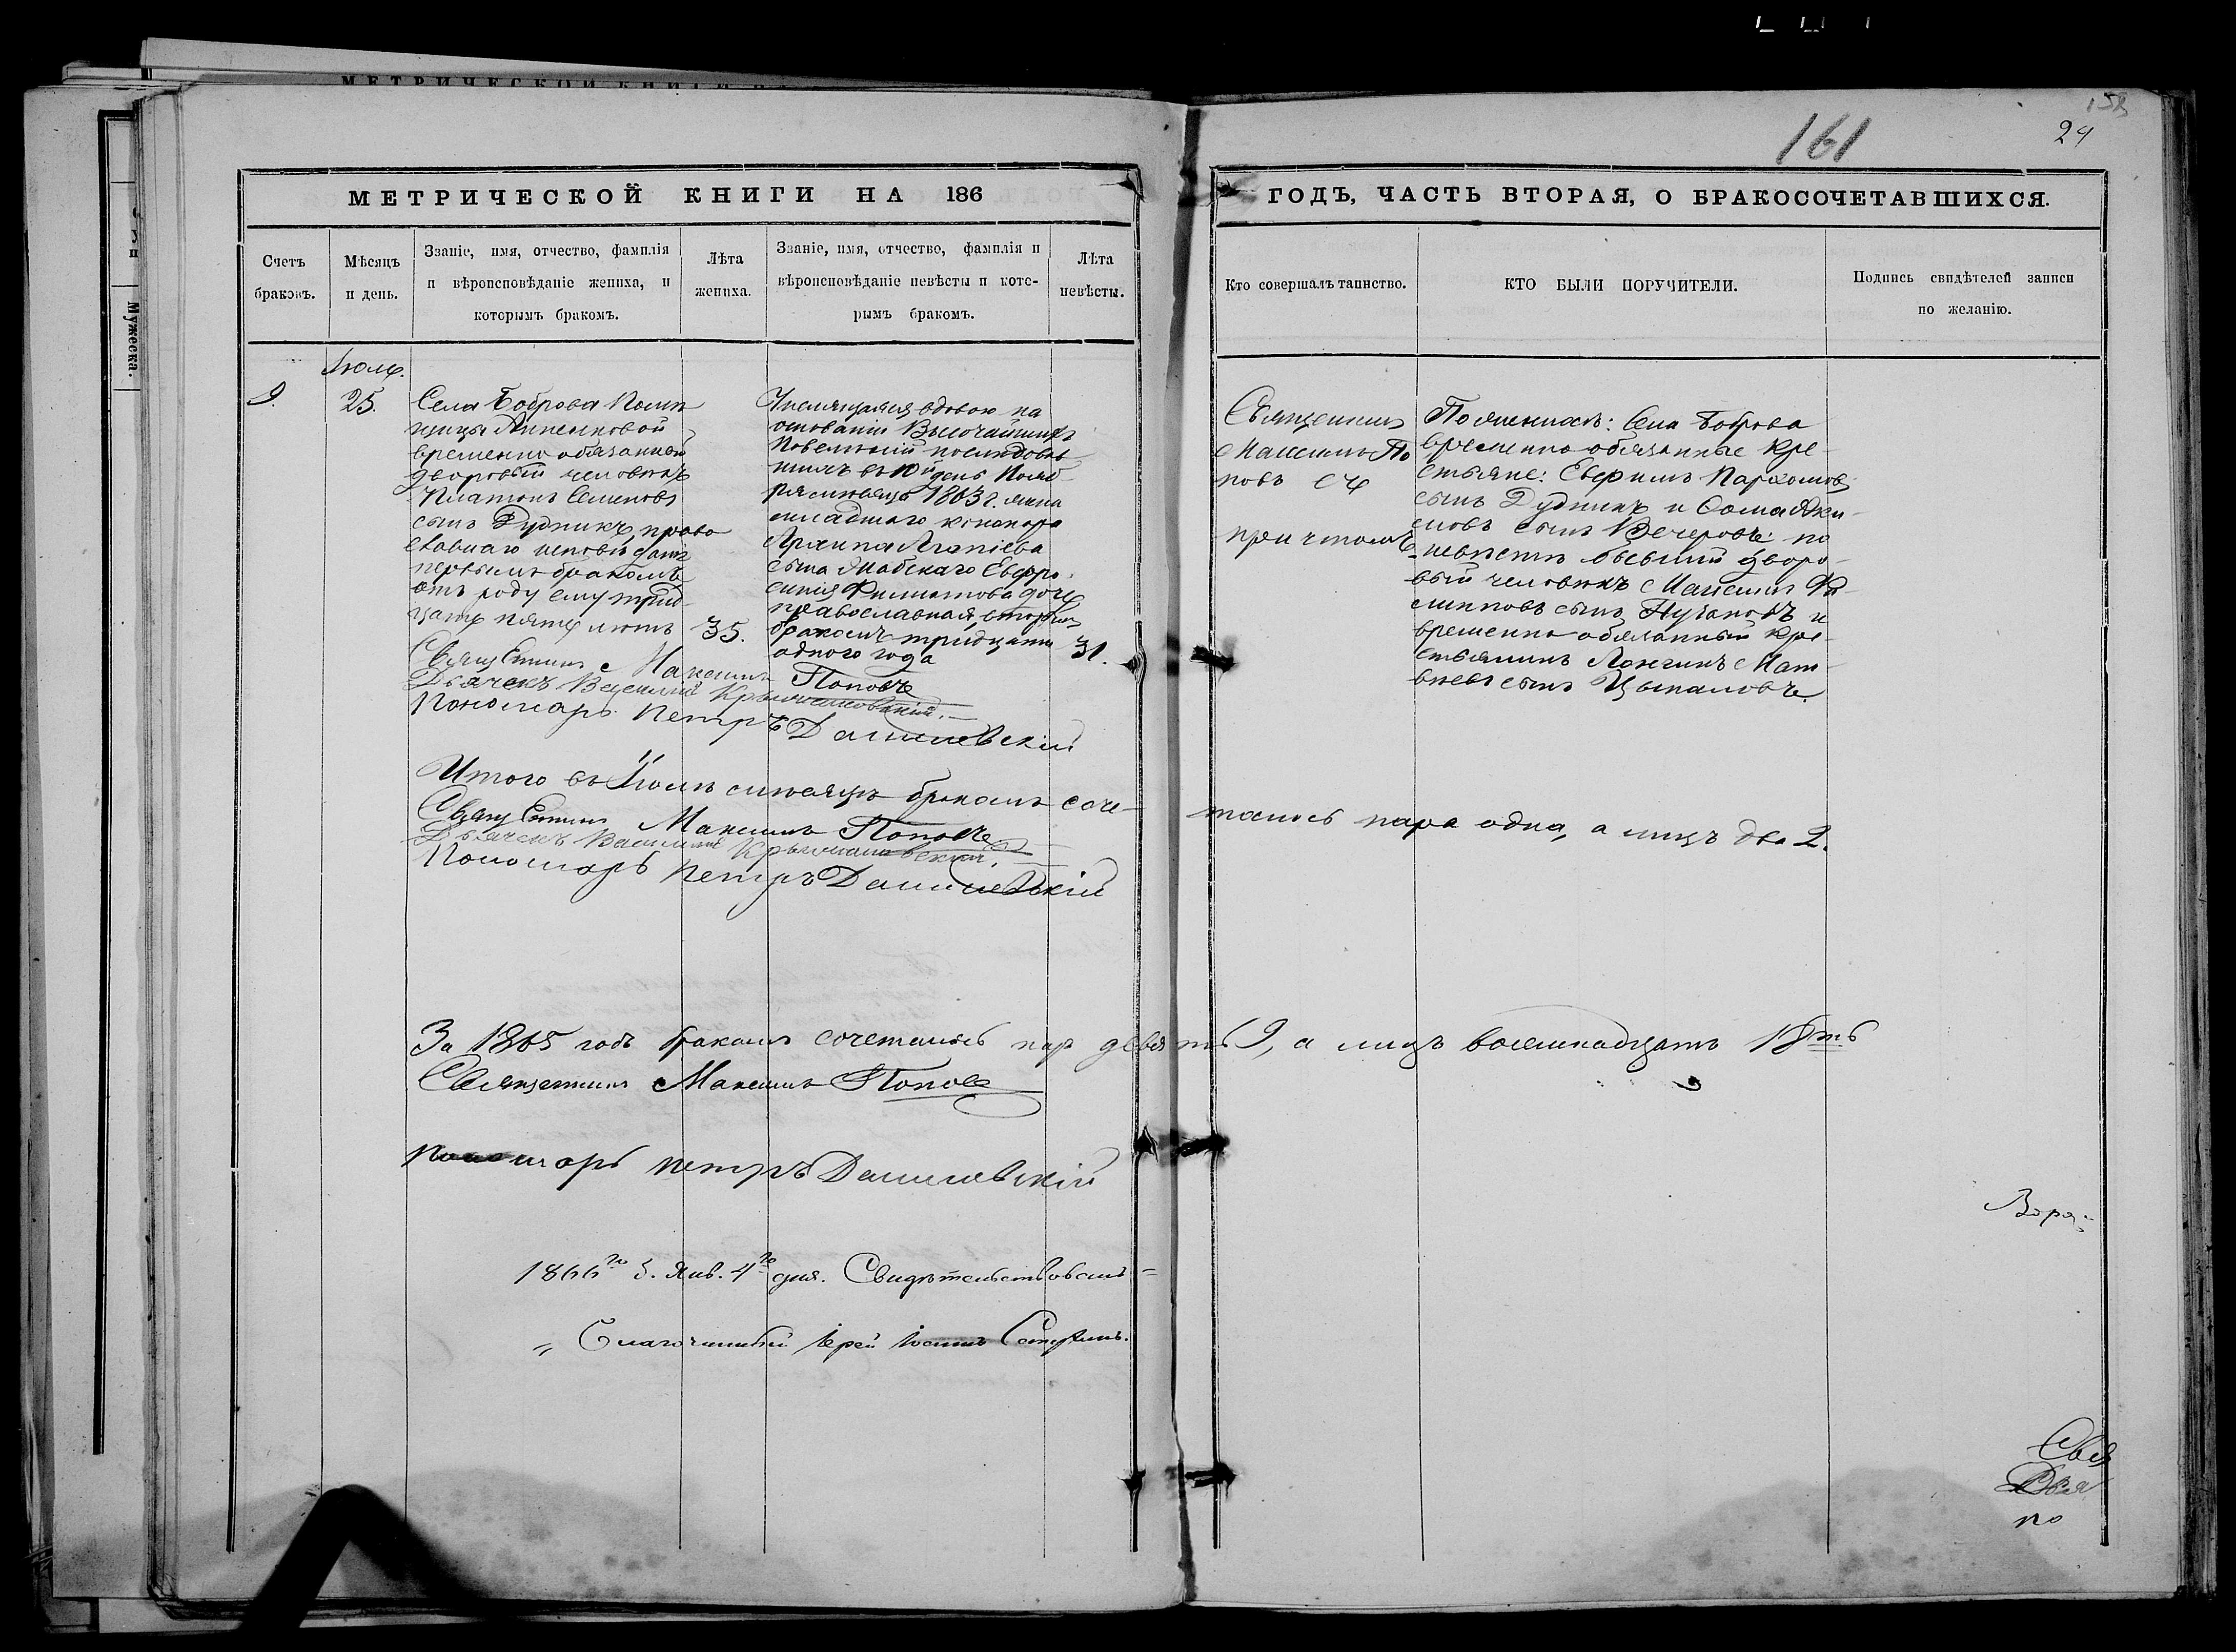 МЕТРИЧЕСКОЙ КНИГИ НА
161
158
24
МЕТРИЧЕСКОЙ КНИГИ НА 186
ГОДЪ, ЧАСТЬ ВТОРАЯ, О БРАКОСОЧЕТАВШИХСЯ.
Счетъ
браковъ.
Мѣсяцъ
и день.
Званіе, имя, отчество, фамилія
и вѣроисповѣданіе жениха, и
которымъ бракомъ.
Лѣта
жениха.
Званіе, имя, отчество, фамилія и
вѣроисповѣданіе невѣсты и кото-
рымъ бракомъ.
Лѣта
невѣсты.
Кто совершалъ таинство.
КТО БЫЛИ ПОРУЧИТЕЛИ.
Подпись свидѣтелей записи
по желанію.
Мужеска.
9.
25.
Села Боброва Помѣ
щицы Анненковой
временно обязанный
дворовый человѣкъ
Платонъ Семеновъ
сынъ Дудникъ, право
славнаго исповѣданія
первымъ бракомъ
отъ роду ему трид-
цать пять лѣтъ
35.
Числящаяся вдовою на
основаніи Высочайшихъ
Повелѣній послѣдовав
шихъ въ 10й день Нояб
ря мѣсяца 1863 г. жена
младшаго
сына Евфро
синія Филиппова дочь
православная, вторымъ
бракомъ тридцати
одного года
31.
Священникъ
Максимъ По
повъ съ
причтомъ
По женихѣ: Села Боброва
временно обязанные кре-
стьяне: Евфимъ Пархомовъ
сынъ Дудникъ и Фома Яки-
мовъ сынъ Вечеровъ: по
невѣстѣ бывшій дворо-
вый человѣкъ Максимъ Фи-
липповъ сынъ и
временно обязанный кре-
стьянинъ Лонгинъ Мат-
вѣевъ сынъ Цыкаловъ.
Священникъ Максимъ Поповъ
Дьячекъ Василий Крыжановскій.
Пономарь Петръ Данилевскій
Итого въ Іюлѣ мѣсяцѣ бракомъ соче-
талось пара одна, а лицъ два 2.
Священникъ Максимъ Поповъ
Дьячекъ Василий Крыжановскій.
Пономарь Петръ Данилевскій
За 1865 годъ бракомъ сочеталось пар девять 9, а лицъ восемнадцать 18ть
Священникъ Максимъ Поповъ
Пономарь Петръ Данилевскій
1866го г. Янв. 4го дня. Свидѣтельствовалъ =
Благочинный Іерей
Свя
Дья
по